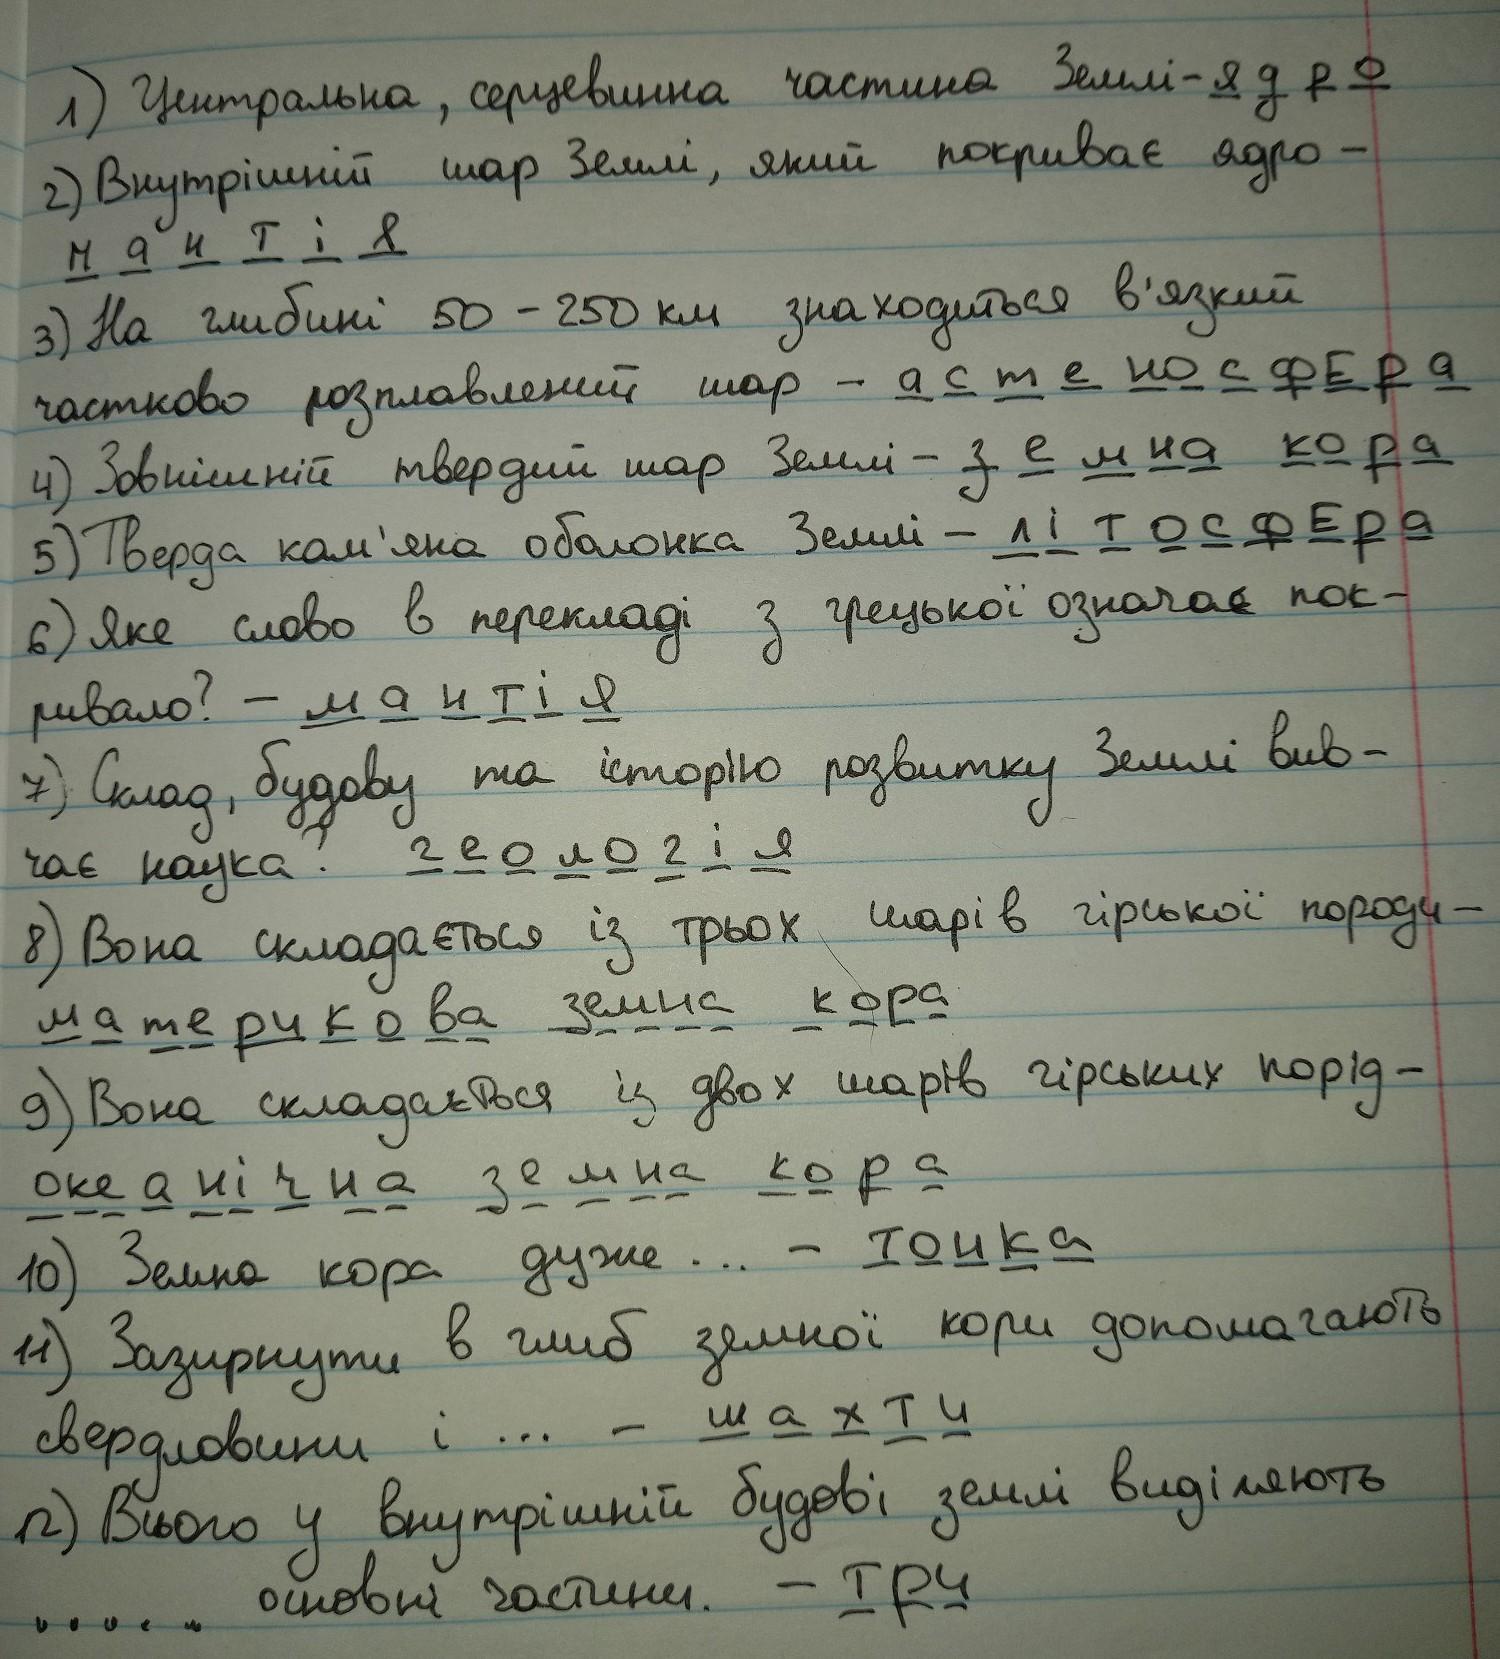 1) Центральна, серцевинна частина Землі - ядро
2) Внутрішній шар Землі, який покриває ядро -
мантія
3) На глибині 50 - 250 км знаходиться в'язкий
частково розплавлений шар - астеносфера
4) Зовнішній твердий шар Землі - земна кора
5) Тверда кам'яна оболонка Землі - літосфера
6) Яке слово в перекладі з грецької означає пок-
ривало? - мантія
7) Склад, будову та історію розвитку Землі вив-
чає наука? геологія
8) Вона складається із трьох шарів гірської породи -
материкова земна кора
9) Вона складається із двох шарів гірських порід -
океанічна земна кора
10) Земна кора дуже ... - тонка
11) Зазирнути в глиб земної кори допомагають
свердловини і ... - шахти
12) Всього у внутрішній будові землі виділяють
..... основні частини. - три